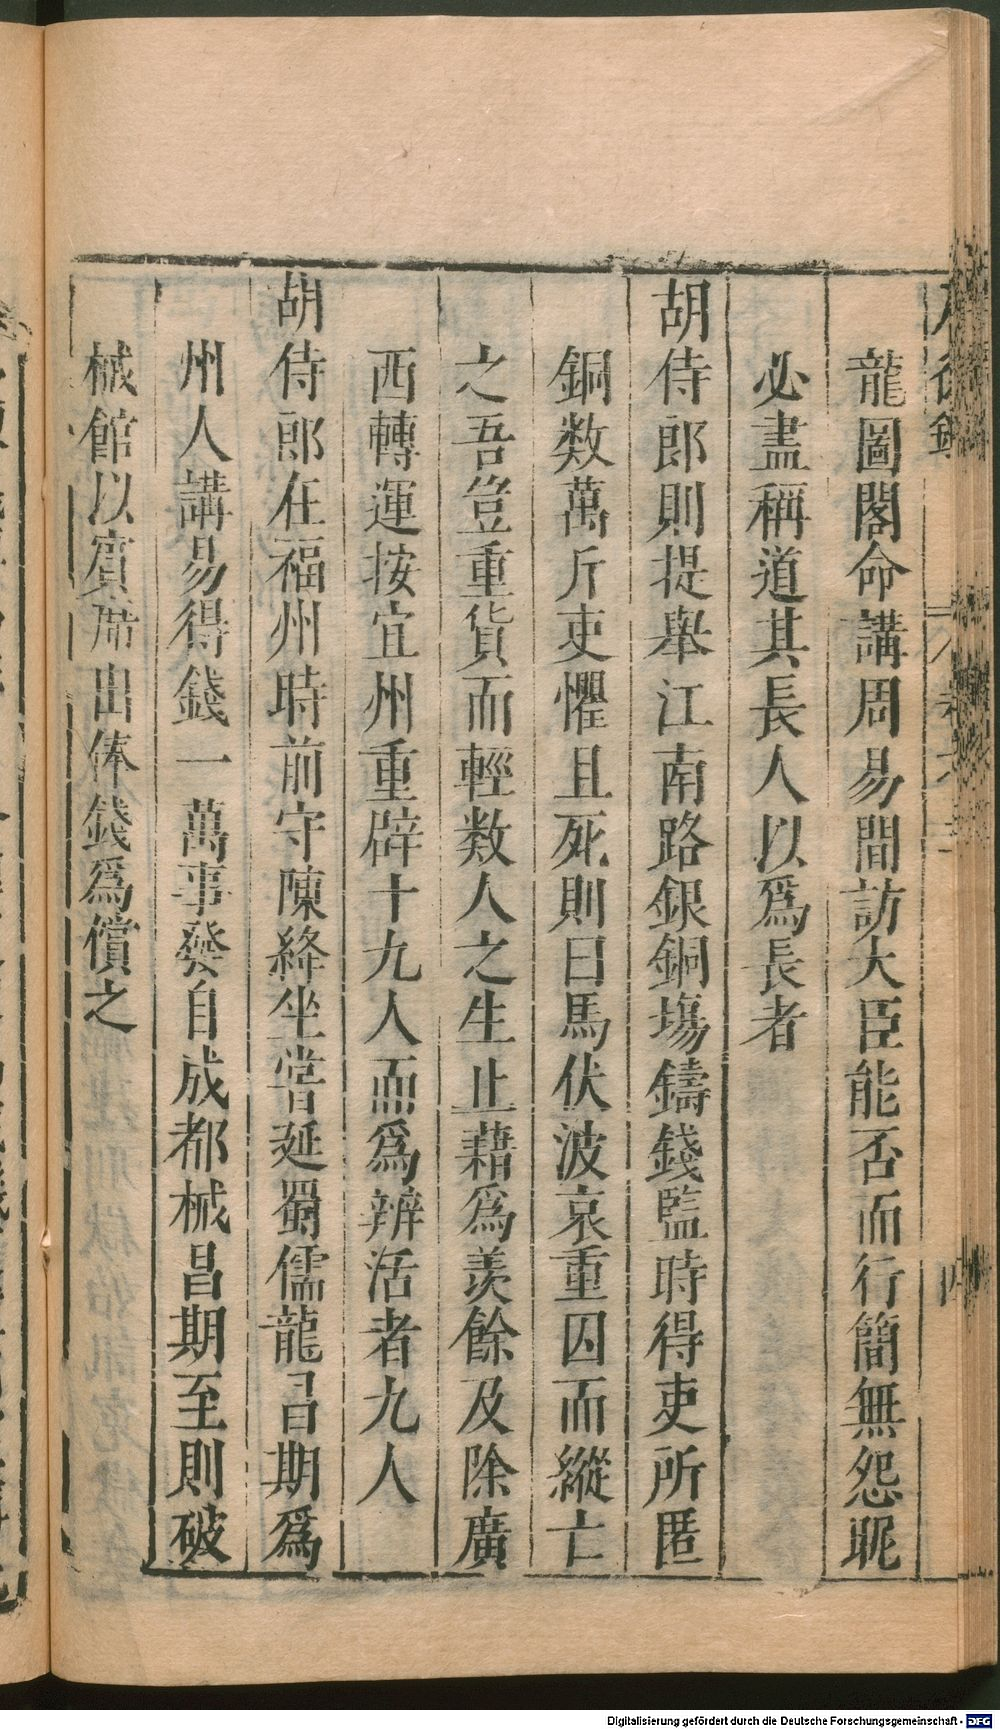 龍圖閣命講周易間訪大臣能否而行簡無怨昵
必盡稱道其長人以爲長者
胡侍郎則提舉江南路銀銅塲鑄錢監時得吏所匿
銅数萬斤吏懼且死則曰馬伏波哀重囚而縱亡
之吾豈重貨而輕数人之生止藉爲羨餘及除廣
西轉運按宜州重辟十九人而爲辨活者九人
胡侍郎在福州時前守陳絳坐嘗延蜀儒龍昌期爲
州人講易得錢一萬事發自成都械昌期至則破
械館以賓席出俸錢爲償之
Digitalisierung gefördert durch die Deutsche Forschungsgemeinschaft - DFG